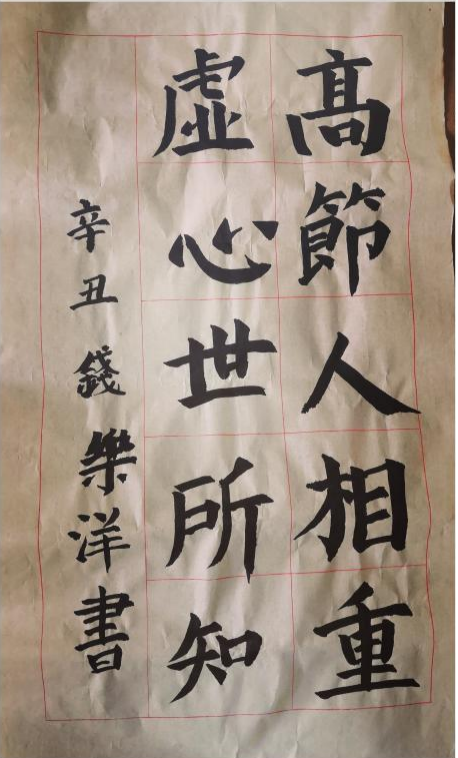 高節人相重
虛心世所知
辛丑錢樂洋書